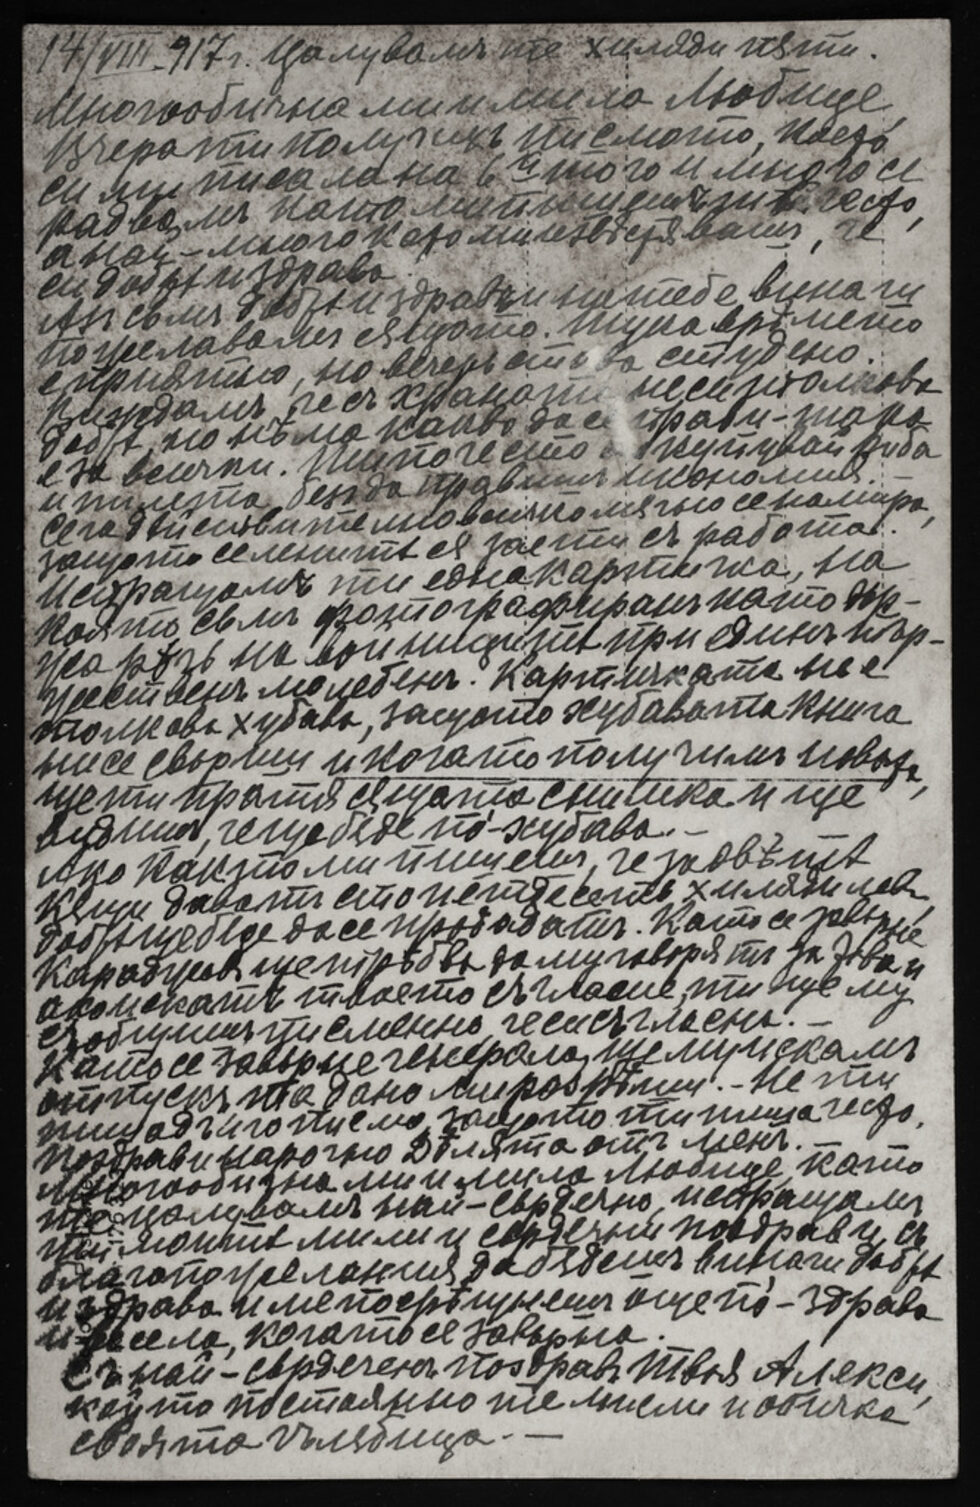 14/VIII.917г. Цалувамъ те хиляди пѫти.
Многообична ми и мила Любице,
Вчера ти получихъ писмото, което
си ми писала на 6ий того и много се
радвамъ като ми пишешъ често,
а най-много като ми извѣстявашъ, че
си добрѣ и здрава.
Азъ съмъ добрѣ и здравъ и на тебе винаги
пожелавамъ сѫщото. Тука врѣмето
е приятно, но вечерь става студено.
Виждамъ, че съ храната не си толкова
добрѣ, но нѣма какво да се прави - така
е за всички. Ти по често купувай риба
и пилета, безъ да правишъ икономия.
Сега дѣйствително всичко мѫчно се намира,
защото селенитѣ сѫ заети съ работа.
Испращамъ ти една картичка, на
която съмъ фотографиранъ като дър-
жа рѣчь на войницитѣ при единъ тър-
жественъ молебенъ. Картичката не е
толкова хубава, защото хубавата книга
ни се свърши и когато получимъ новата,
ще ти пратя сѫщата снимка и ще
видишъ, че ще бѫде по-хубава.-
Ако както ми пишешъ, че за двѣтѣ
кѫщи даватъ сто и петдесеть хиляди лева,
добрѣ ще бѫде да се продадатъ. Като се завърне
ще трѣбва да му говорятъ за това и
ако искатъ твоето съгласие, ти ще му
съобщишъ писменно, че си съгласна.-
Като се завърне генерала, ще му искамъ
отпускъ та дано ми разрѣши.- Не ти
пиша дълго писмо, защото ти пиша често.
Поздрави нарочно отъ менъ.-
Многообична ми и мила Любице, като
те цалувамъ най-сърдечно, испращамъ
ти моитѣ мили и сърдечни поздрави, съ
благопожелания да бѫдешъ винаги добрѣ
и здрава и ме посрѣщнешъ още по-здрава
и весела, когато се завърна.
Съ най-сърдеченъ поздравъ Твоя Алекси,
който постоянно те мисли и обича
своята гълѫбица.-